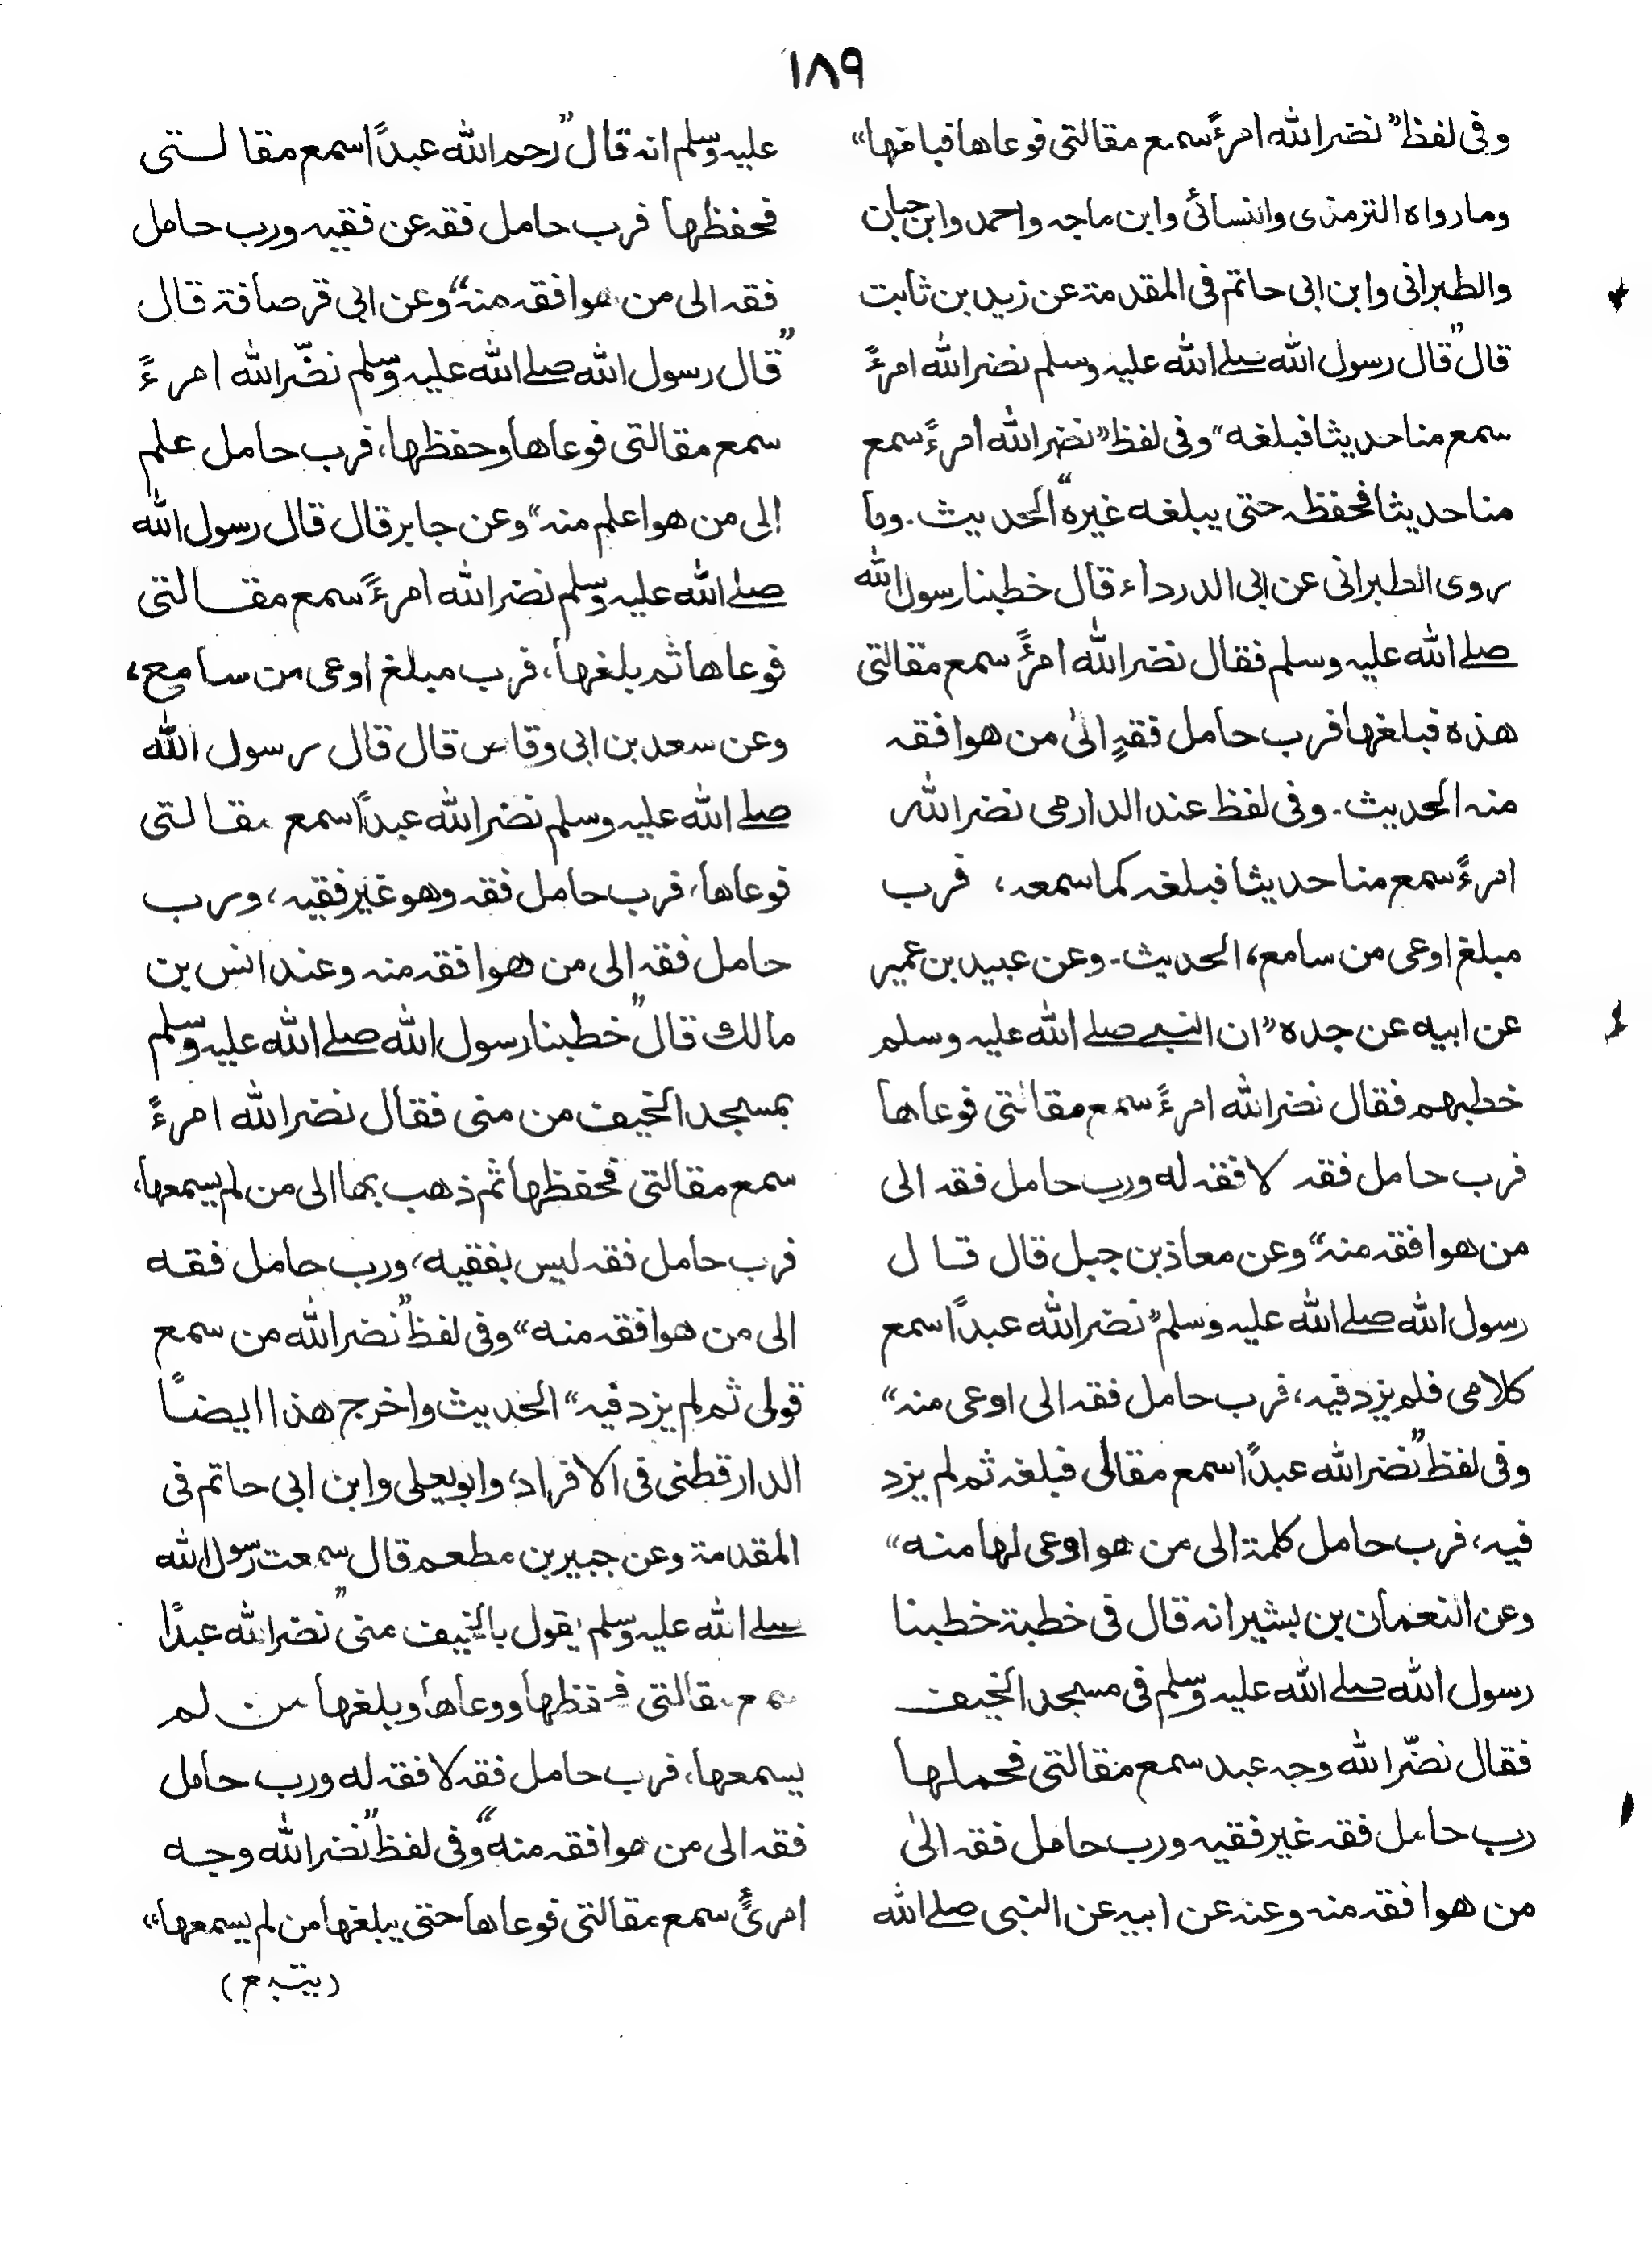 ١٨٩
وفى لفظ ”نضر الله امرءً سمع مقالتى فوعاها فبلغها“
ومارواه الترمذى والنسائى وابن ماجه واحمد وابن حبان
والطبرانى وابن ابى حاتم فى المقدمة عن زيد بن ثابت
قال ”قال رسول الله صلے الله عليه وسلم نضر الله امرءً
سمع منا حديثا فبلغه“ وفى لفظ ”نضر الله امرءً سمع
منا حديثا فحفظه حتى يبلغه غيره“ الحديث. وما
روى الطبرانى عن ابى الدرداء قال خطبنا رسول الله
صلے الله عليه وسلم فقال نضر الله امرءً سمع مقالتى
هذه فبلغها فرب حامل فقهٍ الىٰ من هو افقه
منه الحديث. وفى لفظ عند الدارمى نضر الله
امرءً سمع منا حديثا فبلغه كما سمعه، فرب
مبلغ اوعى من سامع، الحديث. وعن عبيد بن عمير
عن ابيه عن جده ”ان النبى صلے الله عليه وسلم
خطبهم فقال نضر الله امرءً سمع مقالتى فوعاها
فرب حامل فقه لا فقه له ورب حامل فقه الى
من هو افقه منه“ وعن معاذ بن جبل قال قال
رسول الله صلے الله عليه وسلم ”نضر الله عبداً سمع
كلامى فلم يزد فيه، فرب حامل فقه الى اوعى منه“
وفى لفظ ”نضر الله عبداً سمع مقالى فبلغه ثم لم يزد
فيه، فرب حامل كلمة الى من هو اوعى لها منه“
وعن النعمان بن بشير انه قال فى خطبة خطبنا
رسول الله صلے الله عليه وسلم فى مسجد الخيف
فقال نضّر الله وجه عبد سمع مقالتى فحملها
رب حامل فقه غير فقيه ورب حامل فقه الىٰ
من هو افقه منه وعنه عن ابيه عن النبى صلے الله
عليه وسلم انه قال ”رحم الله عبداً سمع مقالتى
فحفظها فرب حامل فقه عن فقيه ورب حامل
فقه الى من هو افقه منه“ وعن ابى قرصافة قال
”قال رسول الله صلے الله عليه وسلم نضّر الله امرءً
سمع مقالتى فوعاها وحفظها، فرب حامل علم
الى من هو اعلم منه“ وعن جابر قال قال رسول الله
صلے الله عليه وسلم نضر الله امرءً سمع مقالتى
فوعاها ثم بلغها، فرب مبلغ اوعى من سامع،
وعن سعد بن ابى وقاص قال قال رسول الله
صلے الله عليه وسلم نضر الله عبداً سمع مقالتى
فوعاها، فرب حامل فقه وهو غير فقيه، ورب
حامل فقه الى من هو افقه منه وعند انس بن
مالك قال ”خطبنا رسول الله صلے الله عليه وسلم
بمسجد الخيف من منى فقال نضر الله امرءً
سمع مقالتى فحفظها ثم ذهب بها الى من لم يسمعها،
فرب حامل فقه ليس بفقيه، ورب حامل فقه
الى من هو افقه منه“ وفى لفظ ”نضر الله من سمع
قولى ثم لم يزد فيه“ الحديث واخرج هذا ايضاً
الدارقطنى فى الافراد، وابو يعلى وابن ابى حاتم فى
المقدمة وعن جبير بن مطعم قال سمعت رسول الله
صلے الله عليه وسلم يقول بالخيف منى ”نضر الله عبداً
سمع مقالتى فحفظها ووعاها وبلغها من لم
يسمعها، فرب حامل فقه لا فقه له ورب حامل
فقه الى من هو افقه منه“ وفى لفظ ”نضر الله وجه
امرئٍ سمع مقالتى فوعاها حتى يبلغها من لم يسمعها“
(يتبع)